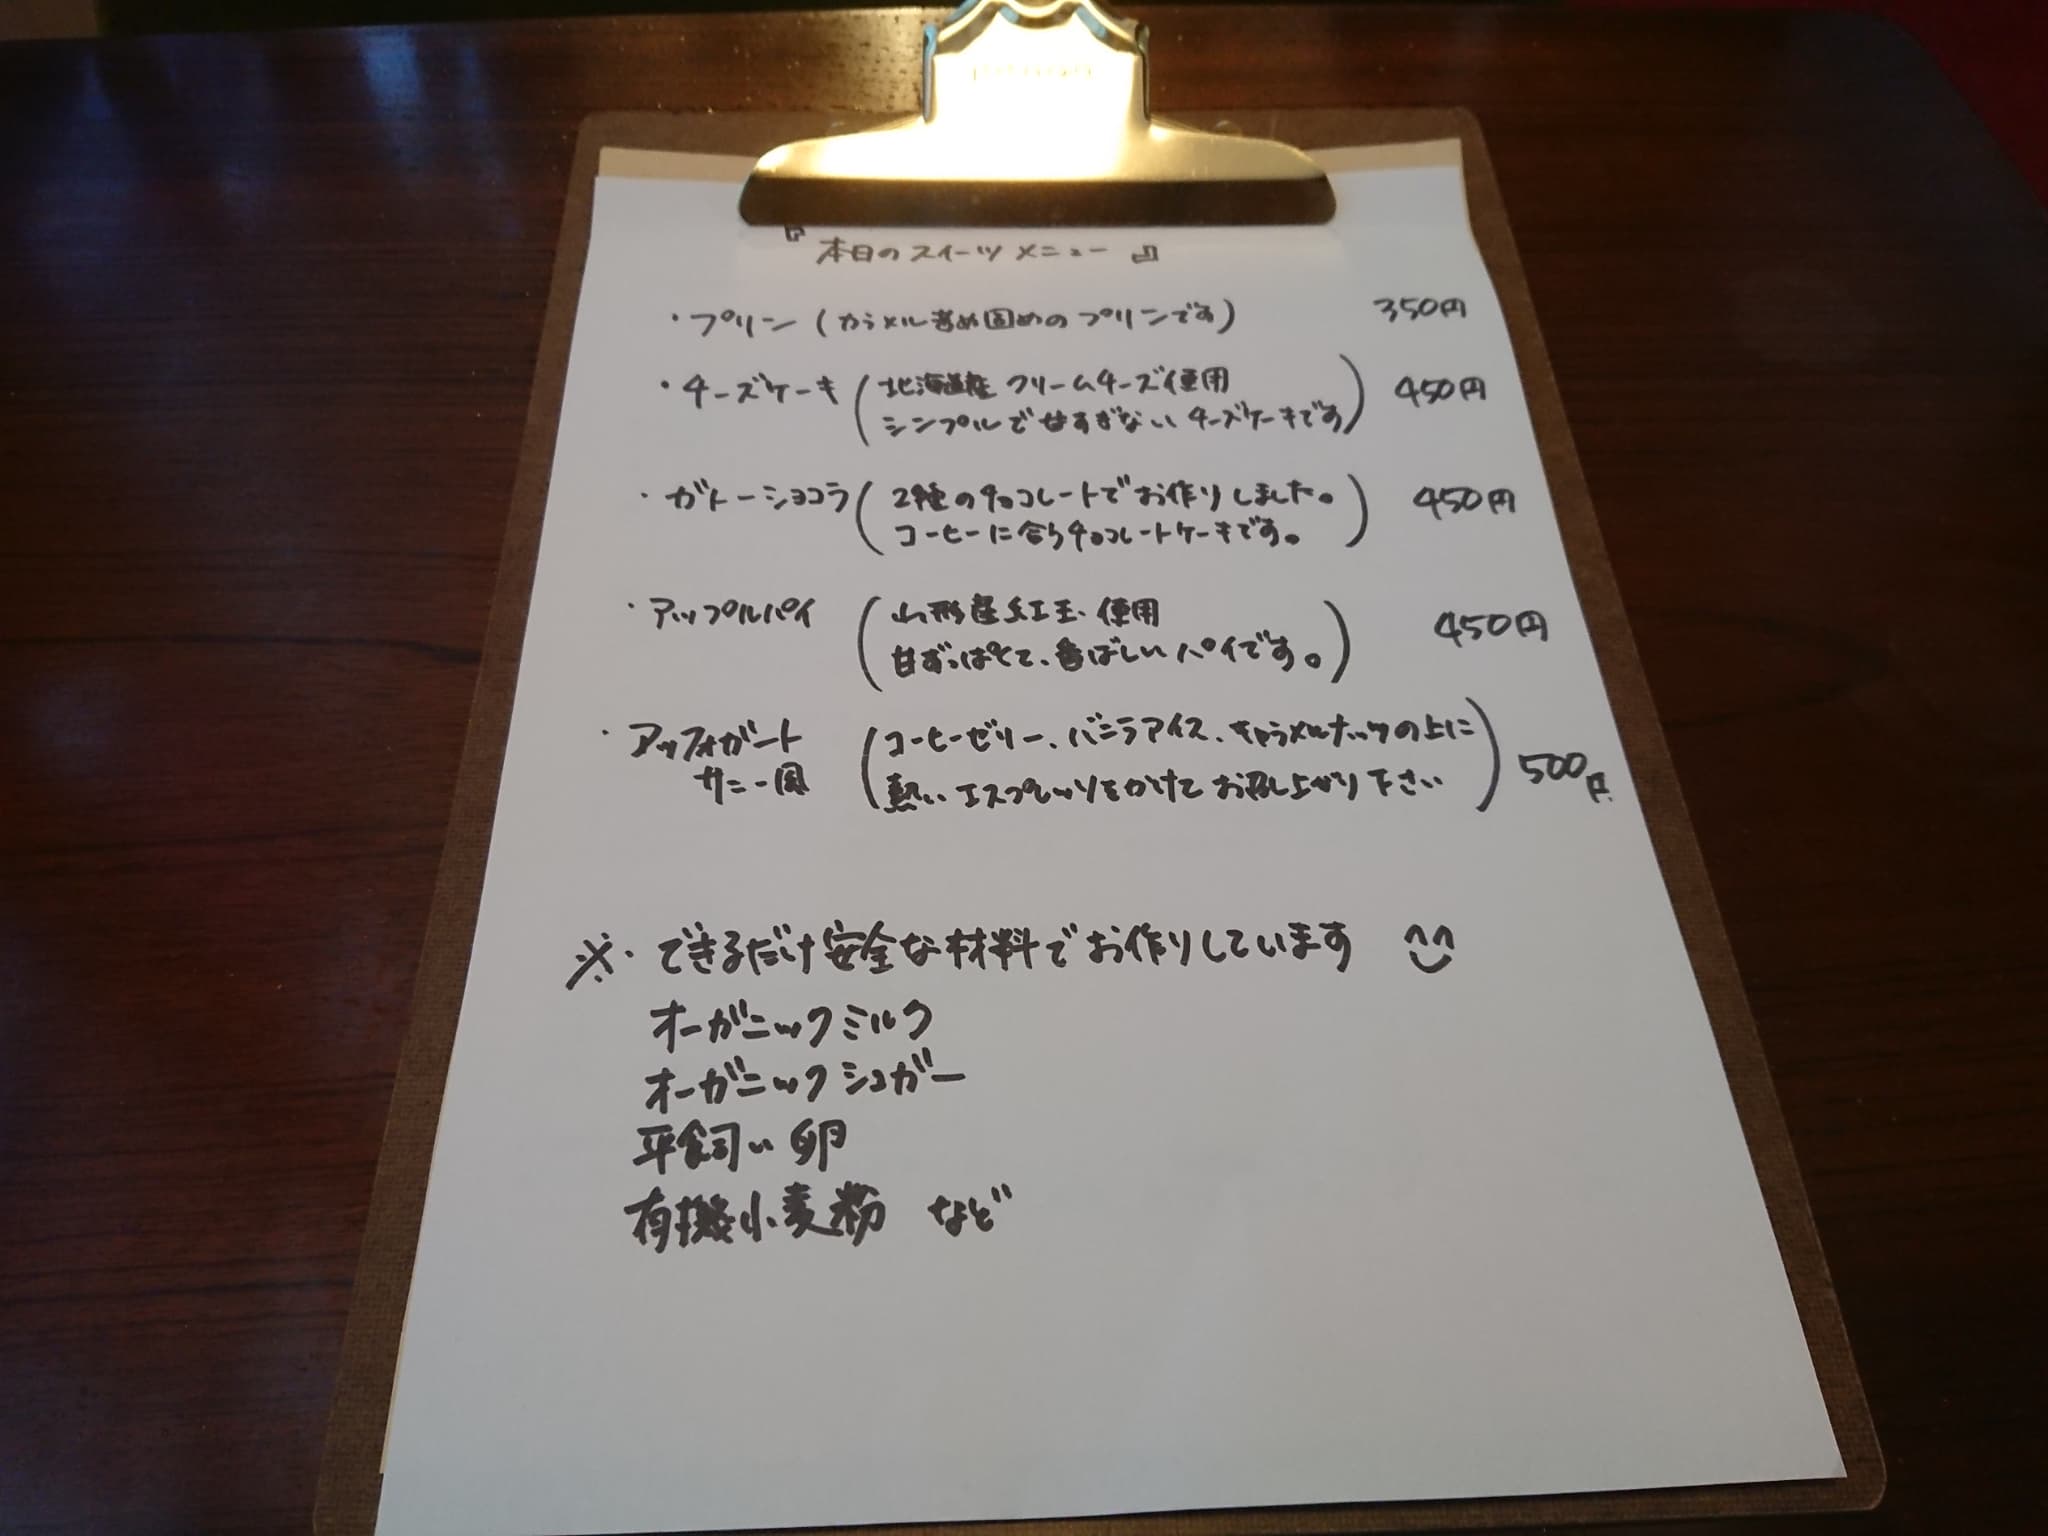 『本日のスイーツメニュー』
・プリン(カラメル苦め固めのプリンです) 350円
・チーズケーキ(北海道産クリームチーズ使用
シンプルで甘すぎないチーズケーキです) 450円
・ガトーショコラ(2種のチョコレートでお作りしました。
コーヒーに合うチョコレートケーキです。) 450円
・アップルパイ(山形産紅玉使用
甘ずっぱくて、香ばしいパイです。) 450円
・アッフォガート(コーヒーゼリー、バニラアイス、キャラメルナッツの上に
サニー風 熱いエスプレッソをかけてお召し上がり下さい) 500円
※・できるだけ安全な材料でお作りしています
オーガニックミルク
オーガニックシュガー
平飼い卵
有機小麦粉 など